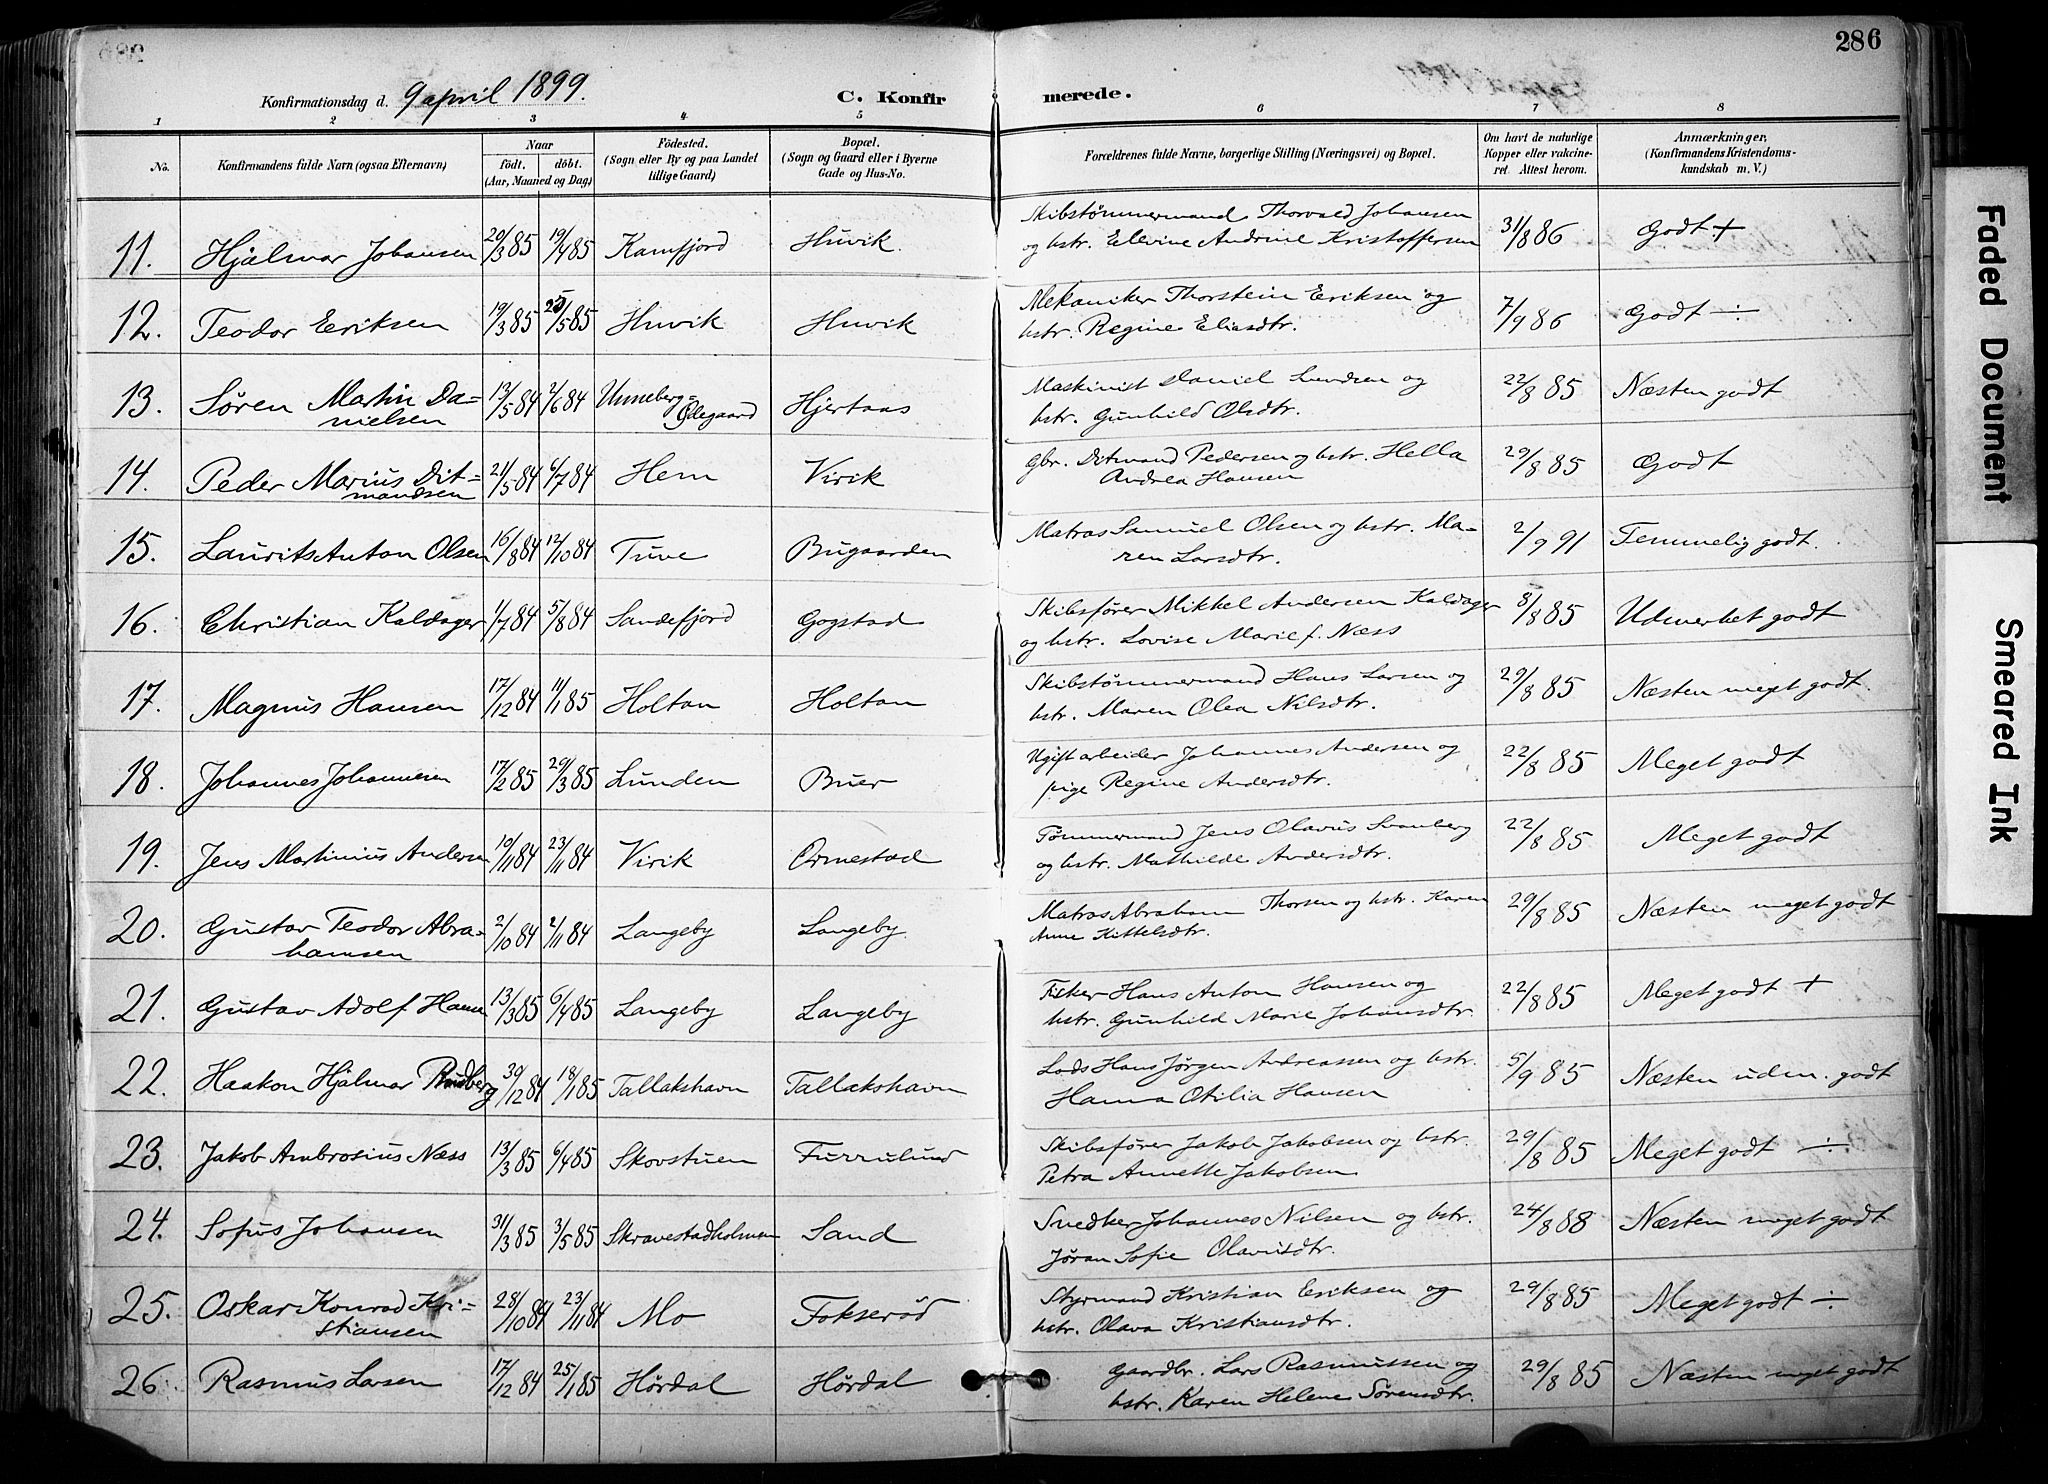 286
Konfirmationsdag d. 9 april 1899.
C. Konfirmerede.
1 2 3 4 5 6 7 8
No. Konfirmandens fulde Navn (ogsaa Efternavn) Naar födt. döbt. (Aar, Maaned og Dag) Födested. (Sogn eller By og paa Landet tillige Gaard) Bopæl. (Sogn og Gaard eller i Byerne Gade og Hus-No. Forældrenes fulde Navne, borgerlige Stilling (Næringsvei) og Bopæl. Om havt de naturlige Kopper eller vakcineret. Attest herom. Anmærkninger, (Konfirmandens Kristendomskundskab m. V.)
11. Hjalmar Johansen 20/3 85 19/4 85 Kamfjord Huvik. Skibstømmermand Thorvald Johansen 31/8 86 Godt +
og hstr. Elevine Andrine Kristoffersen
12. Teodor Eriksen 19/3 85 25/5 85 Huvik Huvik Mekaniker Thorstein Eriksen og 7/9 86 Godt ÷
hstr. Regine Eliasdtr.
13. Søren Martin Da= 13/5 84 2/6 84 Unneberg= Hjertaas Maskinist Daniel Lundsen og 22/8 85 Næsten godt
nielsen Ødegaard hstr. Gunhild Olsdtr.
14. Peder Marius Dit= 21/5 84 6/7 84 Hem Virik Gbr. Ditmand Pedersen og hstr. Hella 29/8 85 Godt
mandsen Andrea Hansen
15. Laurits Anton Olsen 16/8 84 12/10 84 Tuve Bugaarden Matros Samuel Olsen og hstr. Ma= 2/9 91 Temmelig godt.
ren Larsdtr.
16. Christian Kaldager 1/7 84 5/8 84 Sandefjord Gogstad Skibsfører Mikkel Andersen Kaldager 8/8 85 Udmerket godt
og hstr. Lovise Marie f. Næss
17. Magnus Hansen 17/12 84 11/1 85 Holtan Holtan Skibstømmermand Hans Larsen og 29/8 85 Næsten meget godt.
hstr. Maren Olea Nilsdtr.
18. Johannes Johannesen 17/2 85 29/3 85 Lunden Buer Ugift arbeider Johannes Andersen og 22/8 85 Meget godt
pige Regine Andersdtr.
19. Jens Martinius Andersen 10/11 84 23/11 84 Virik Ormestad Tømmermand Jens Olavus Svanberg 22/8 85 Meget godt
og hstr. Mathilde Andersdtr.
20. Gustav Teodor Abra= 2/10 84 2/11 84 Langeby Langeby. Matros Abraham Thorsen og hstr. Karen 29/8 85 Næsten meget godt
hamsen Anne Kittelsdtr.
21. Gustav Adolf Hansen 13/3 85 6/4 85 Langeby Langeby Fisker Hans Anton Hansen og 22/8 85 Meget godt +
hstr. Gunhild Marie Johansdtr.
22. Haakon Hjalmar Rundberg 30/12 84 18/1 85 Tallakshavn Tallakshavn Lods Hans Jørgen Andreassen og hstr. 5/9 85 Næsten udm. godt
Hanna Otilia Hansen
23. Jakob Ambrosius Næss 13/3 85 6/4 85 Skovstuen Furrulund Skibsfører Jakob Jakobsen og hstr. 29/8 85 Meget godt ÷
Petra Annette Jakobsen
24. Sofus Johansen 31/3 85 3/5 85 Skravestadholmen Sand Snedker Johannes Nilsen og hstr. 24/8 88 Næsten meget godt
Jøran Sofie Olavusdtr.
25. Oskar Konrad Kri= 28/10 84 23/11 84 Mo Fokserød Styrmand Kristian Eriksen og 29/8 85 Meget godt ÷
stiansen hstr. Olava Kristiansdtr.
26. Rasmus Larsen 17/12 84 25/1 85 Hørdal Hørdal Gaardbr. Lars Rasmussen og 29/8 85 Næsten meget godt
hstr. Karen Helene Sørensdtr.
Faded Document
Smeared Ink